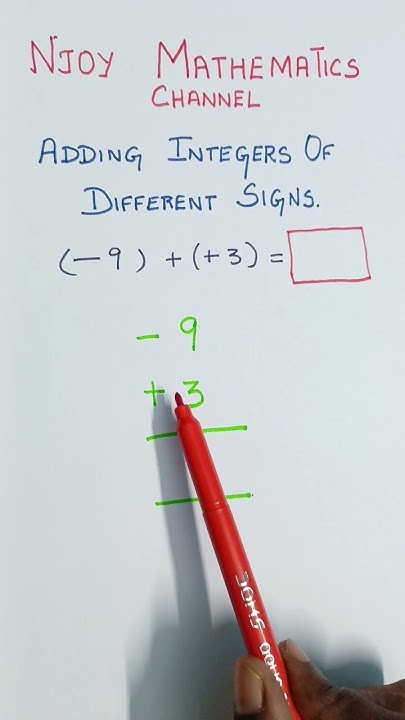 NJOY MATHEMATICS
CHANNEL
ADDING INTEGERS OF
DIFFERENT SIGNS.
(-9) + (+3) =
- 9
+ 3
DOMS